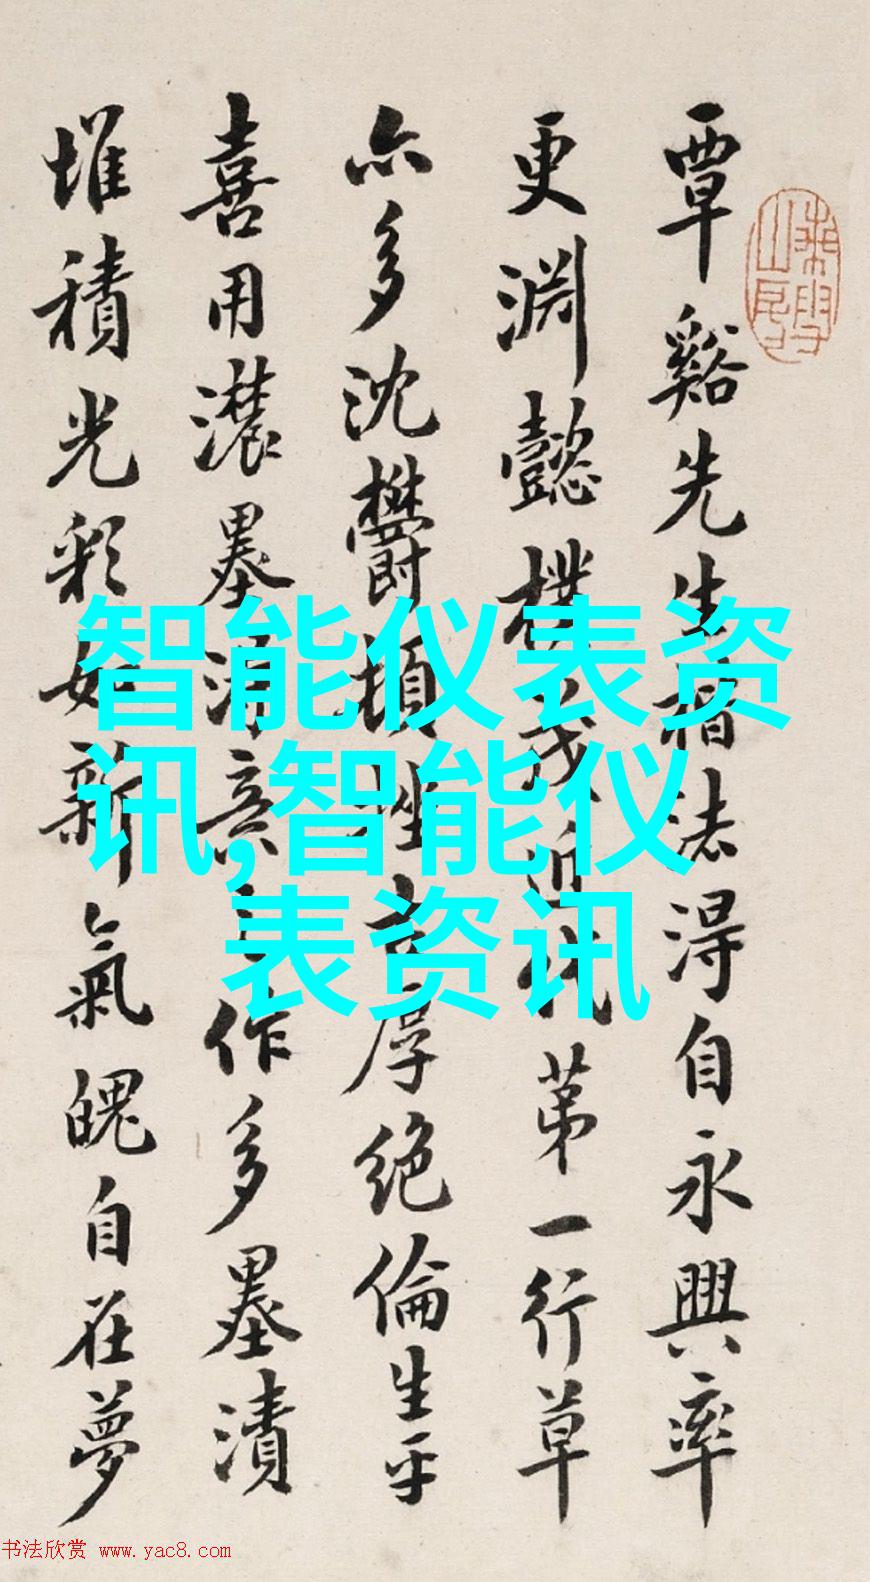 覃谿先生楷法得自永興率
更淵懿樸茂近代第一行草
亦多沈鬱頓挫
厚絕倫生平
喜用濃墨
作多墨漬
堆積光彩如新氣魄自在夢
智能仪表资
讯,智能仪
表资讯
书法欣赏 www.yac8.com